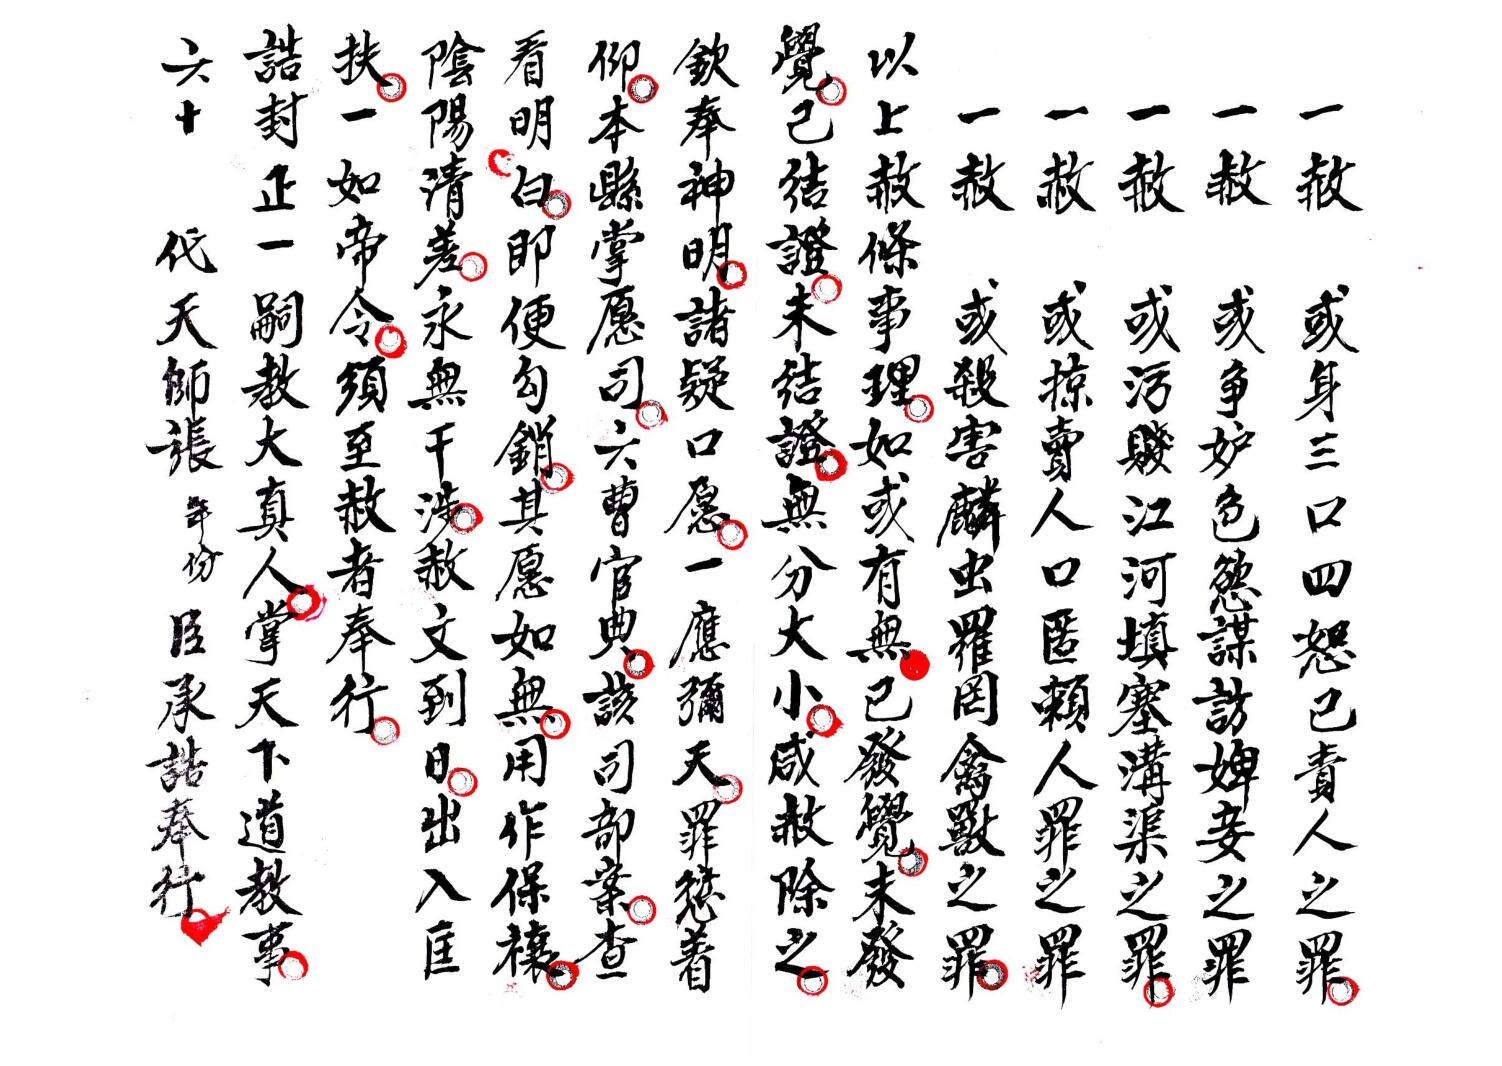 一赦　或身三口四恕己責人之罪
一赦　或爭妒色慾謀訪婢妾之罪
一赦　或污賤江河填塞溝渠之罪
一赦　或掠賣人口匿賴人罪之罪
一赦　或殺害麟虫羅罔禽獸之罪
以上赦條事理如或有無已發覺未發
覺己結證未結證無分大小咸赦除之
欽奉神明諸疑口愿一應彌天罪愆着
仰本縣掌愿司六曹官典該司部案查
看明白即便勾銷其愿如無用作保禳
陰陽清差永無干涉赦文到日出入匡
扶一如帝令須至赦者奉行
誥封正一嗣教大真人掌天下道教事
六十　代天師張年份臣承誥奉行